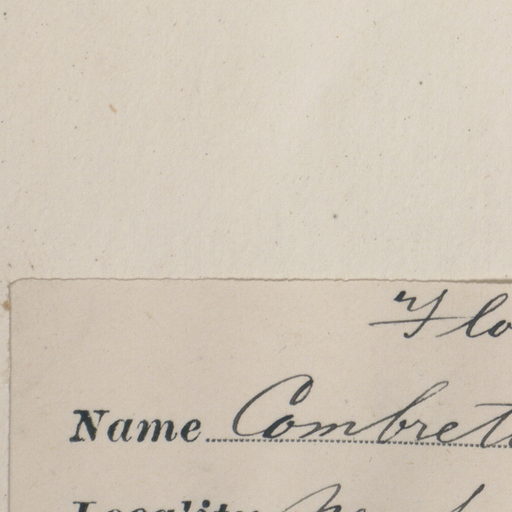 Flo
Name Combret
Locality